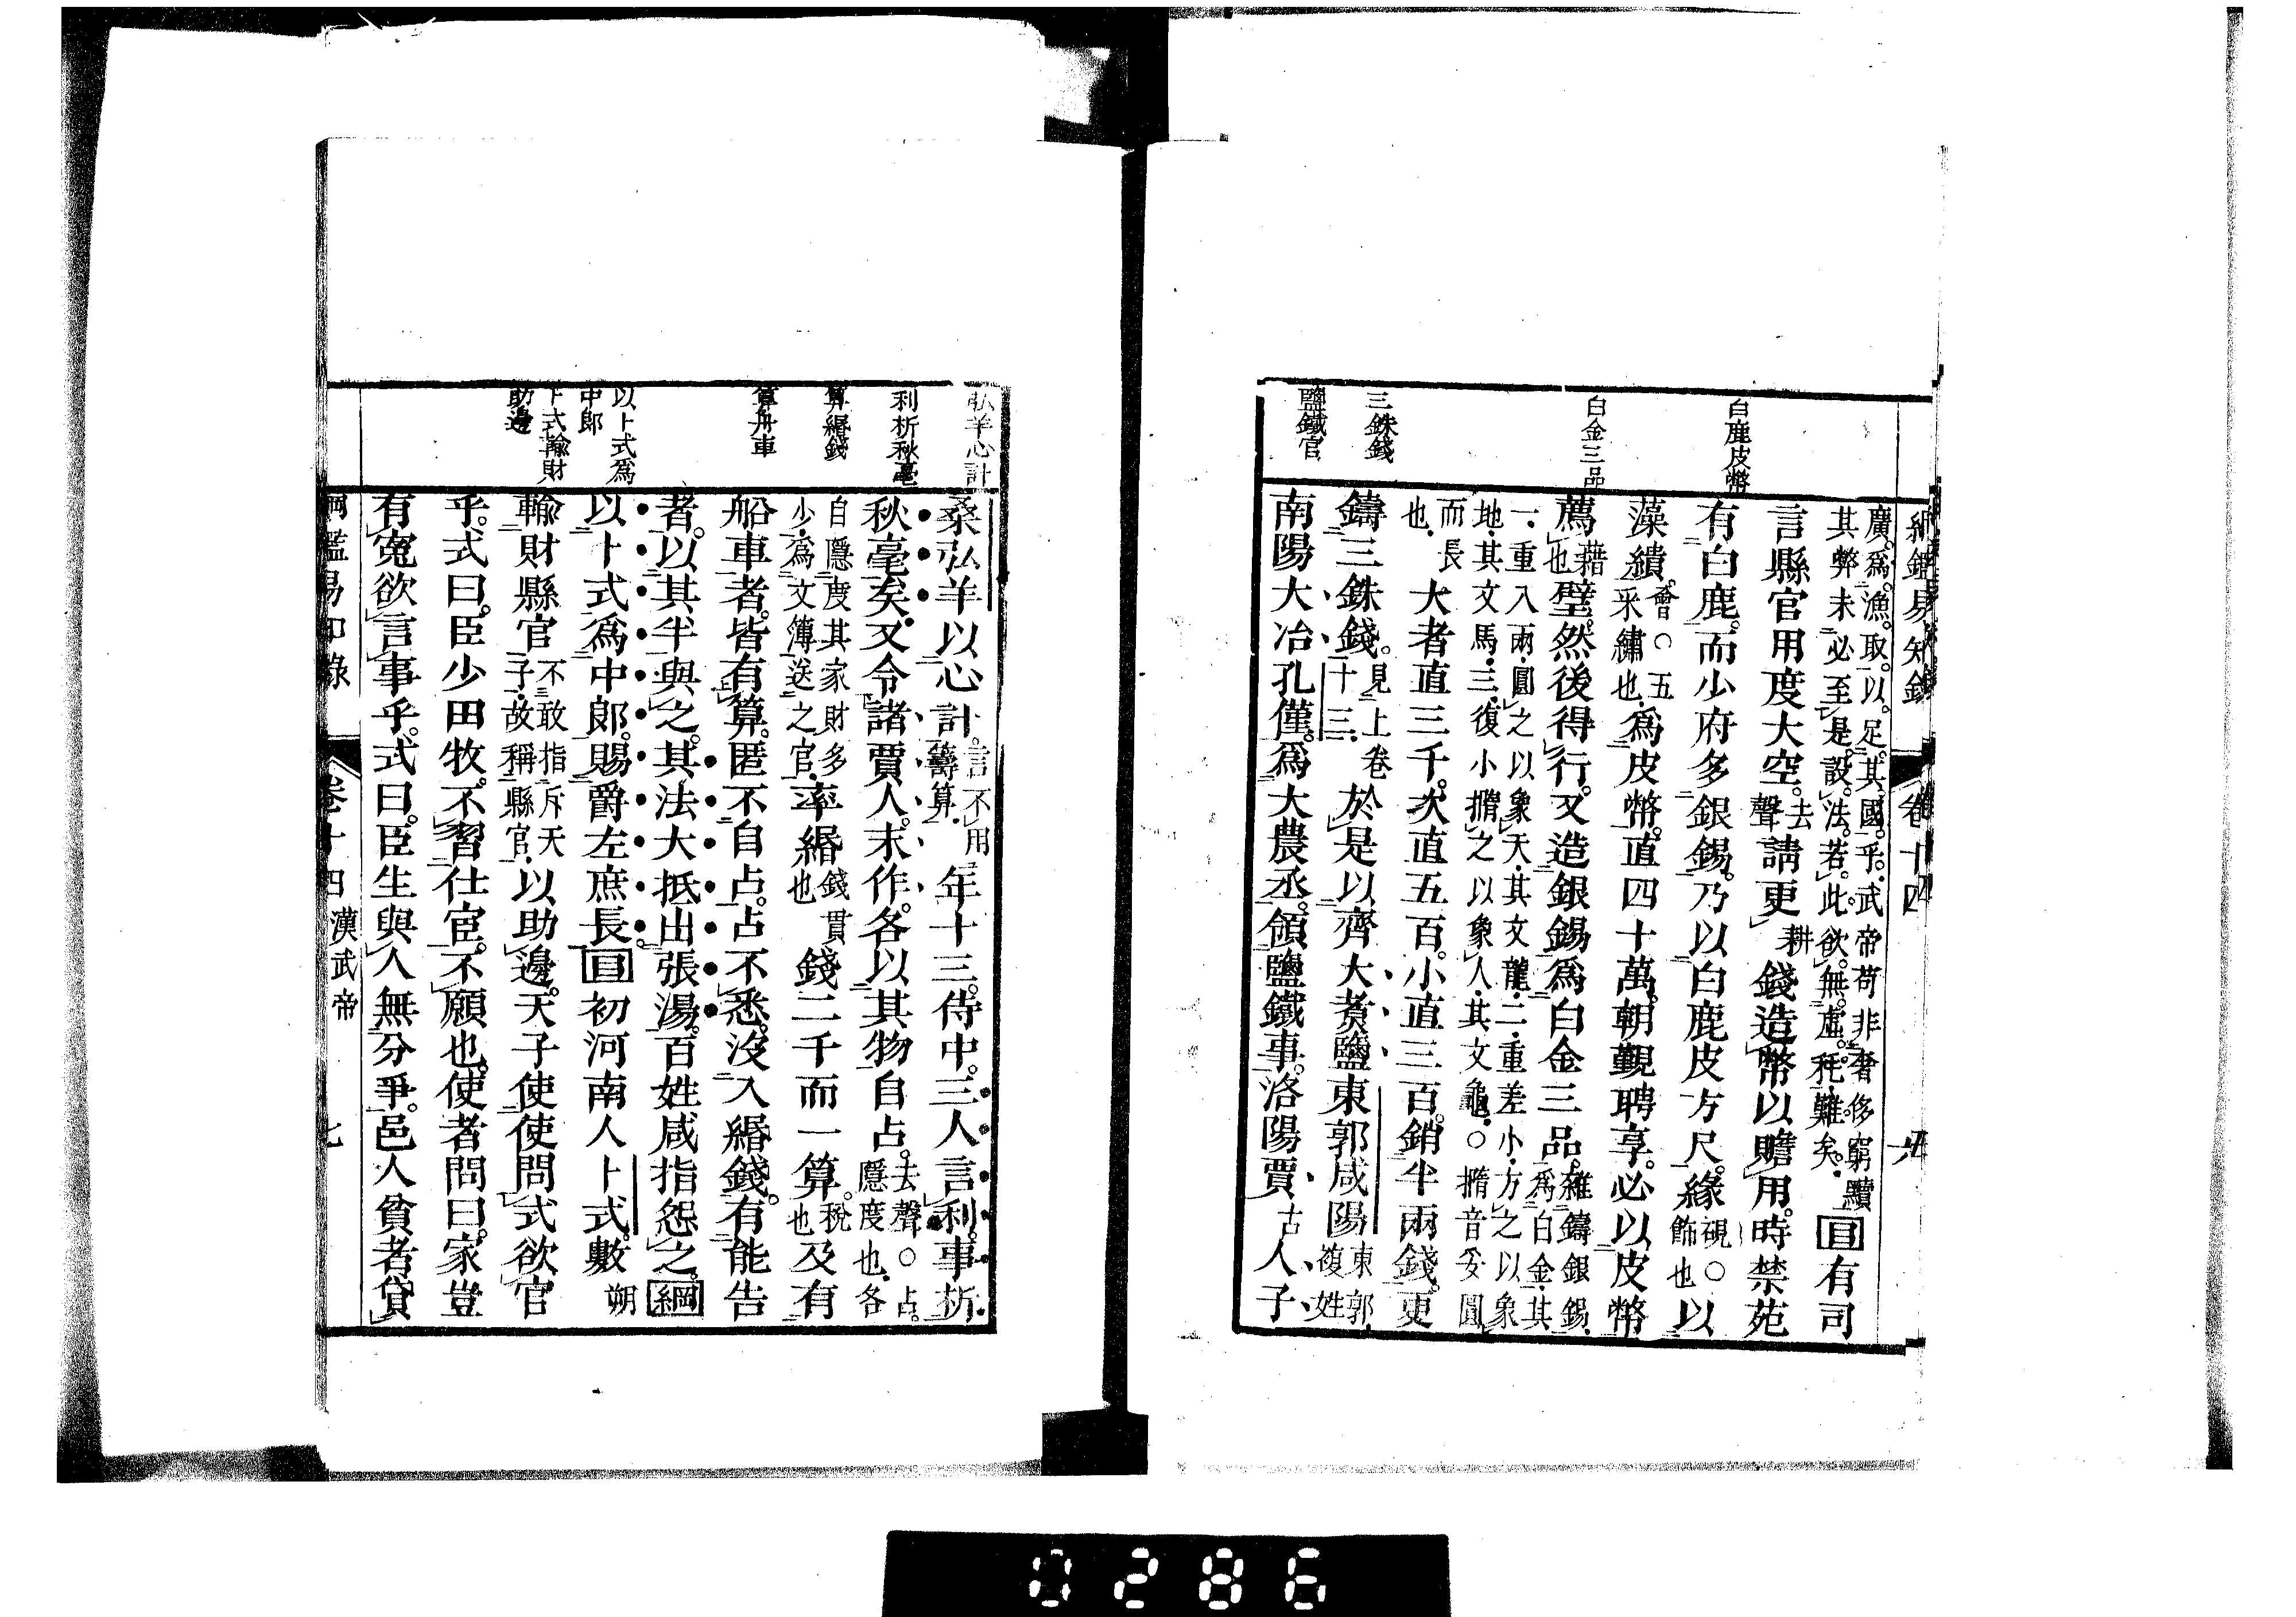 綱鑑易知錄 卷十四 六
白鹿皮幣
白金三品
三銖錢
鹽鐵官
廣。爲漁。取以足其國乎。武帝苟非奢侈窮黷
其弊未必至是。設法若此。欲無虛耗難矣。目有司
言縣官用度大空。去聲請更耕錢造幣以贍用。時禁苑
有白鹿。而少府多銀錫。乃以白鹿皮方尺。緣硯○飾也以
藻繢。會○五采繡也爲皮幣。直四十萬。朝覲聘享。必以皮幣
薦藉也璧。然後得行。又造銀錫爲白金三品。雜鑄銀錫爲白金其
一重八兩圓之以象天其文龍二重差小方之以象
地其文馬三復小撱之以象人其文龜○撱音妥圓
而長也大者直三千。次直五百。小直三百。銷半兩錢。更
鑄三銖錢。見上卷十三於是以齊大煑鹽東郭咸陽東郭複姓
南陽大冶孔僅。爲大農丞。領鹽鐵事。洛陽賈古人子
弘羊心計
利析秋毫
算緡錢
算舟車
以卜式爲
中郎
卜式輸財
助邊
桑弘羊以心計。言不用籌算年十三。侍中。三人言利。事析
秋毫矣。又令諸賈人。末作。各以其物自占。去聲○占隱度也各
自隱度其家財多少爲文簿送之官率緡錢貫也錢二千而一算。稅也及有
船車者。皆有算。匿不自占。占不悉。沒入緡錢。有能告
者。以其半與之。其法大抵出張湯。百姓咸指怨之。綱
以卜式爲中郎。賜爵左庶長。目初河南人卜式。數朔
輸財縣官不敢指斥天子故稱縣官以助邊。天子使使問式欲官
乎。式曰。臣少田牧。不習仕宦。不願也。使者問曰。家豈
有冤欲言事乎。式曰。臣生與人無分爭。邑人貧者貸
綱鑑易知錄 卷十四 漢武帝 七
0286